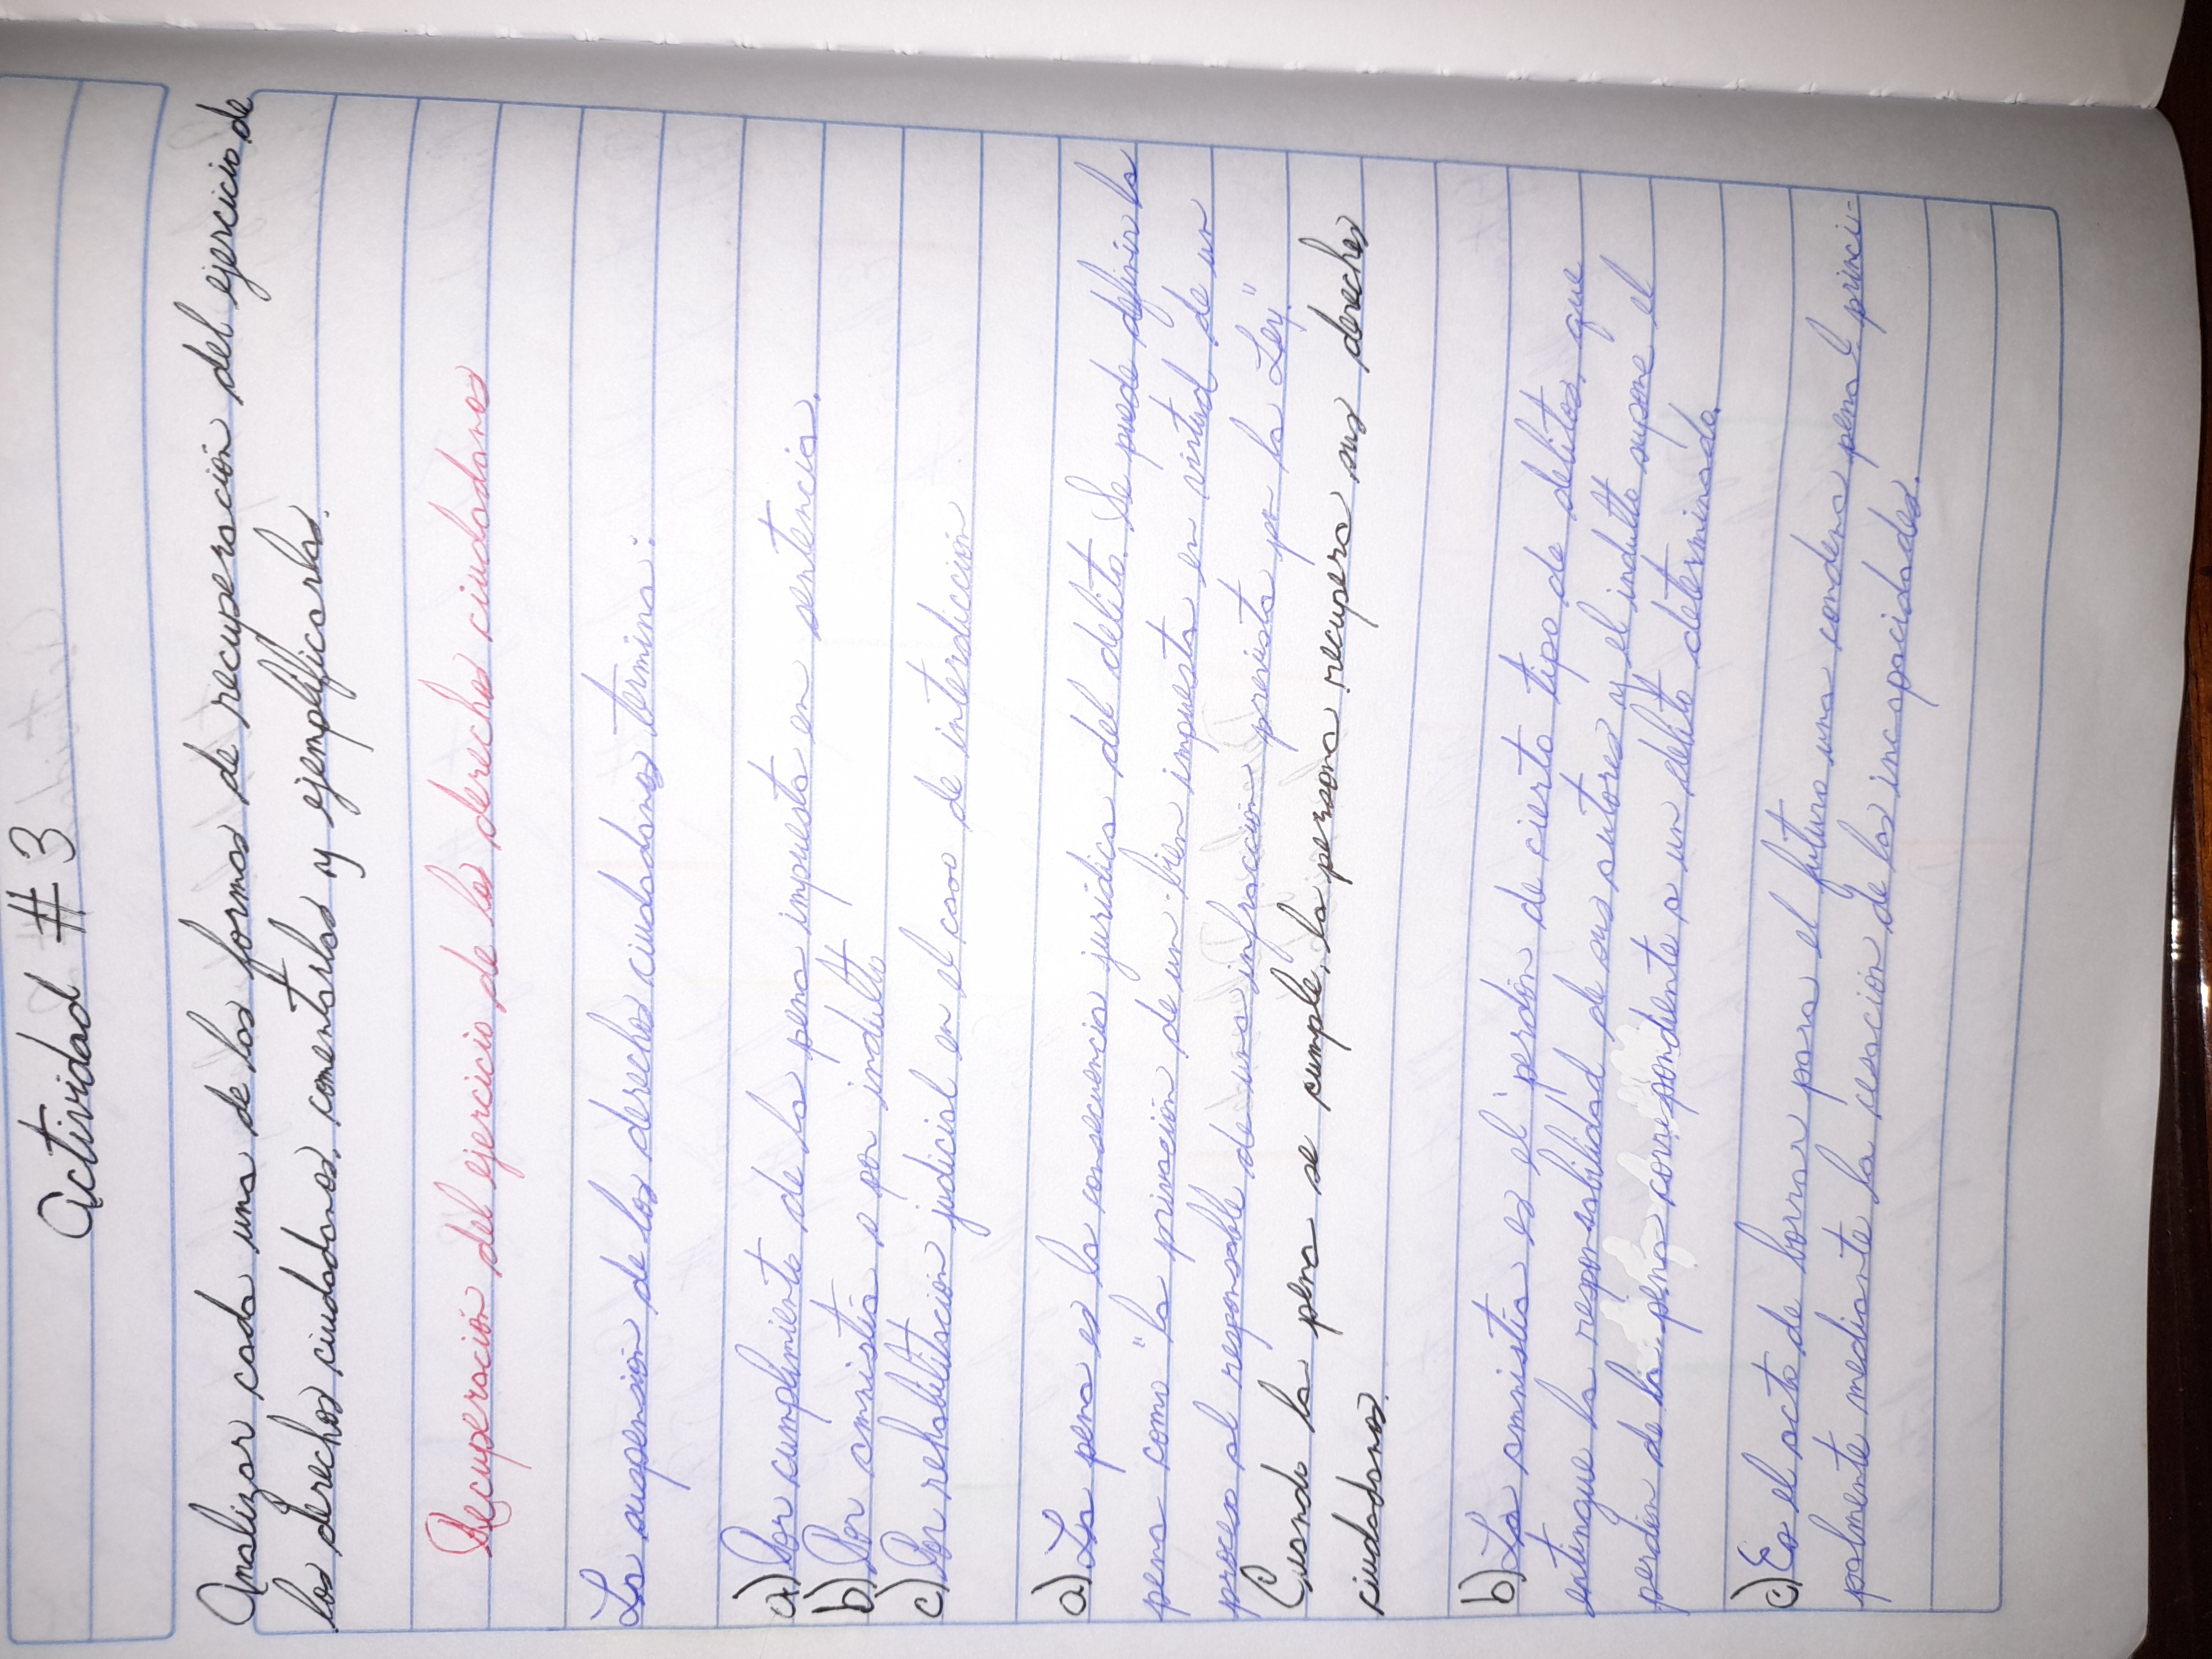 Actividad # 3
Analizar cada una de las formas de recuperación del ejercicio de
los derechos ciudadanos, comentarlas y ejemplificarlas.
Recuperación del ejercicio de los derechos ciudadanos
La suspensión de los derechos ciudadanos termina:
a) Por cumplimiento de la pena impuesta en sentencia.
b) Por amnistía o por indulto
c) Por rehabilitación judicial en el caso de interdicción
a) La pena es la consecuencia jurídica del delito. Se puede definir la
pena como "la privación de un bien impuesta en virtud de un
proceso al responsable de una infracción prevista por la Ley."
Cuando la pena se cumple, la persona recupera sus derechos
ciudadanos.
b) La amnistía es el perdón de cierto tipo de delitos, que
extingue la responsabilidad de sus autores y el indulto supone el
perdón de la pena correspondiente a un delito determinado.
c) Es el acto de borrar para el futuro una condena penal princi-
palmente mediante la cesación de las incapacidades.